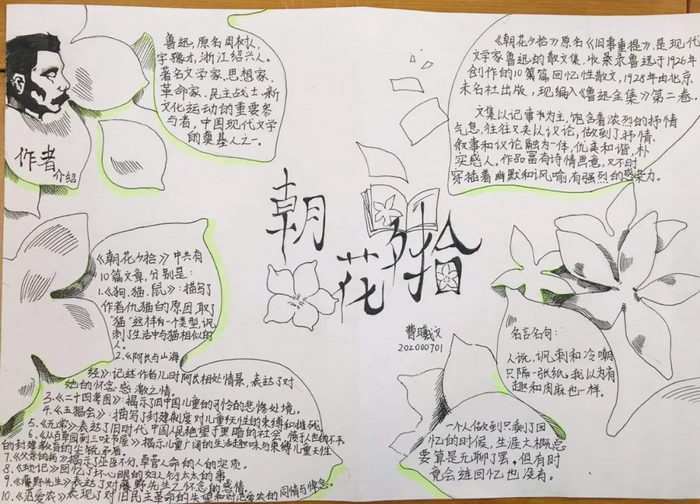 作者
介绍
鲁迅,原名周树人,
字豫才,浙江绍兴人。
著名文学家、思想家、
革命家、民主战士,新
文化运动的重要参
与者,中国现代文学
的奠基人之一。
《朝花夕拾》原名《旧事重提》,是现代
文学家鲁迅的散文集,收录鲁迅于1926年
创作的10篇回忆性散文,1928年由北京
未名社出版,现编入《鲁迅全集》第二卷。
文集以记事为主,饱含着浓烈的抒情
气息,往往又夹以议论,做到了抒情、
叙事和议论融为一体,优美和谐,朴
实感人。作品富有诗情画意,又不时
穿插着幽默和讽喻,有强烈的感染力。
朝花夕拾
202000701
《朝花夕拾》中共有
10篇文章,分别是:
1.《狗、猫、鼠》:描写了
作者仇猫的原因,取了
“猫”这样有一个类型,讽
刺了生活中与猫相似的
人。
2.《阿长与山海
经》记述作者儿时阿长相处情景,表达了对
她的怀念感激之情。
3.《二十四孝图》揭示了旧中国儿童的可怜的悲惨处境。
4.《五猖会》:描写了封建制度对儿童天性的束缚和摧残。
5.《无常》表达了旧时代中国人民绝望于黑暗的社会,
6.《从百草园到三味书屋》揭示儿童广阔的生活趣味与束缚儿童天性
的封建教育的尖锐矛盾。
8.《琐记》回忆了坏心眼的妇人衍太太的事
9.《藤野先生》表达了对藤野先生
10.《范爱农》表现了对旧民主革命的失望和对范爱农的同情与悼念。
名言名句:
人说,讽刺和冷嘲
只隔一张纸,我以为有
趣和肉麻也一样。
一个人做到只剩了回
忆的时候,生涯大概总
要算是无聊了罢,但有时
竟会连回忆也没有。